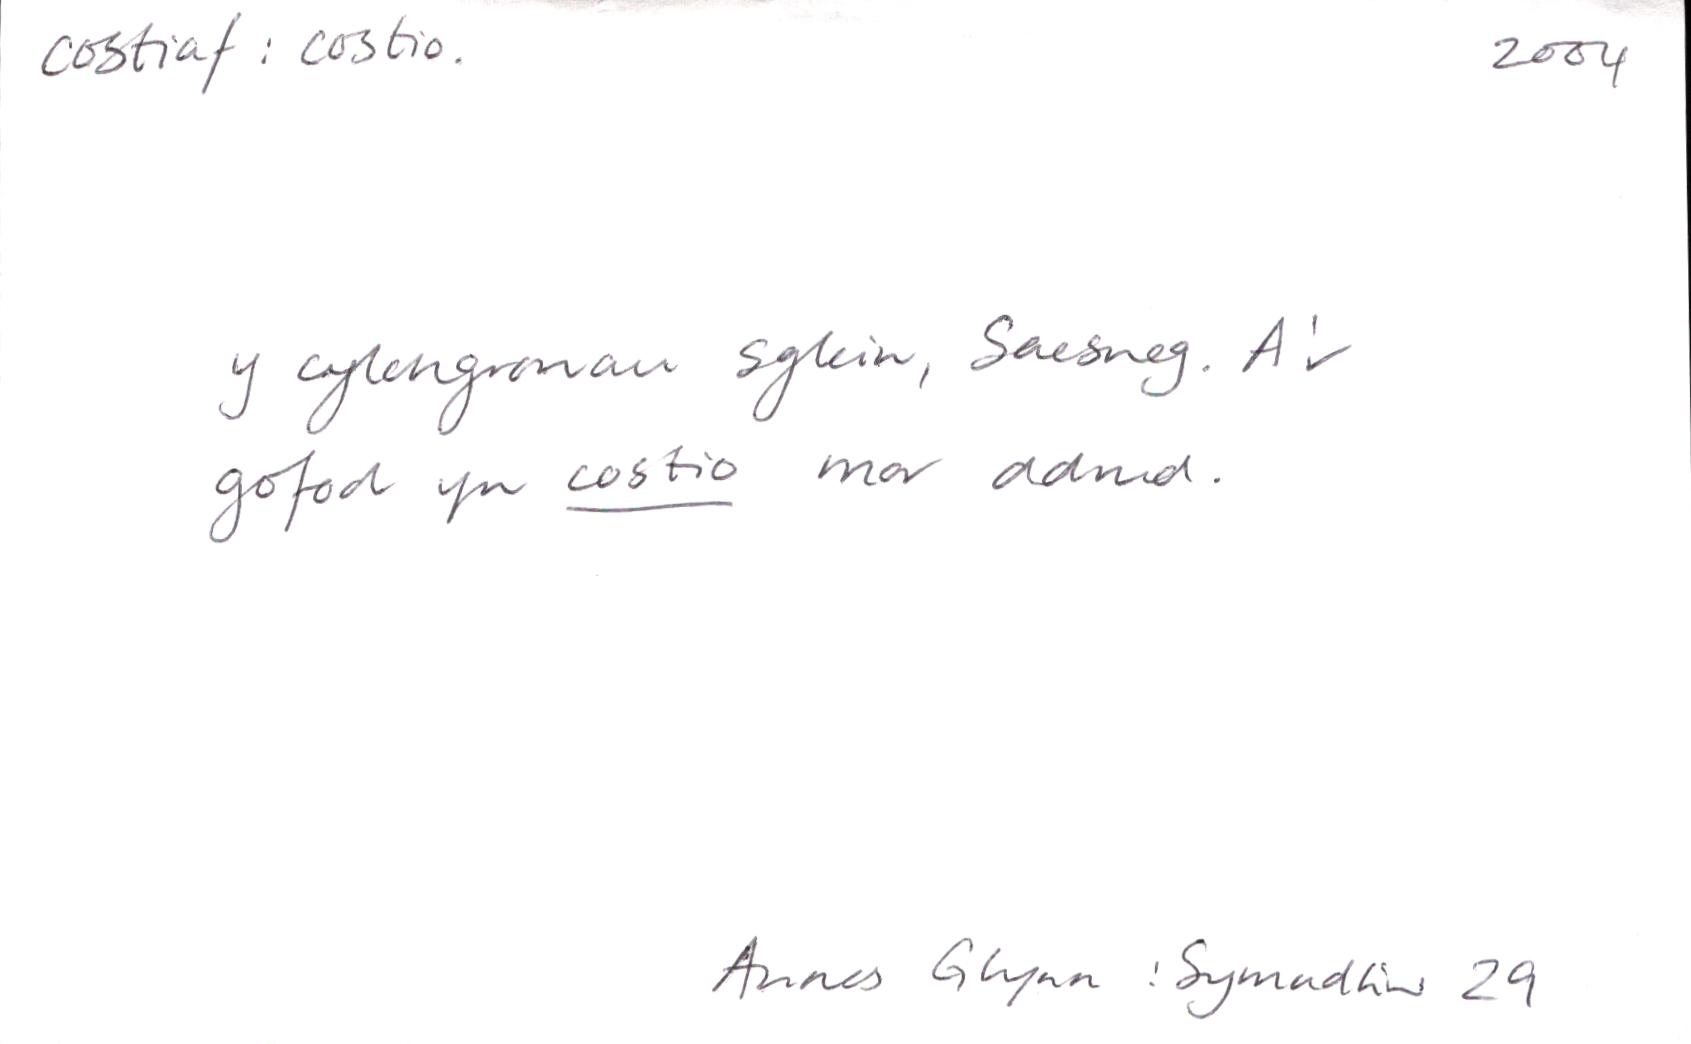 costiaf : costio.
2004
y cylchgronau sglein, Saesneg. A'r
gofod yn costio mor ddrud.
Annes Glynn : Symudliw 29